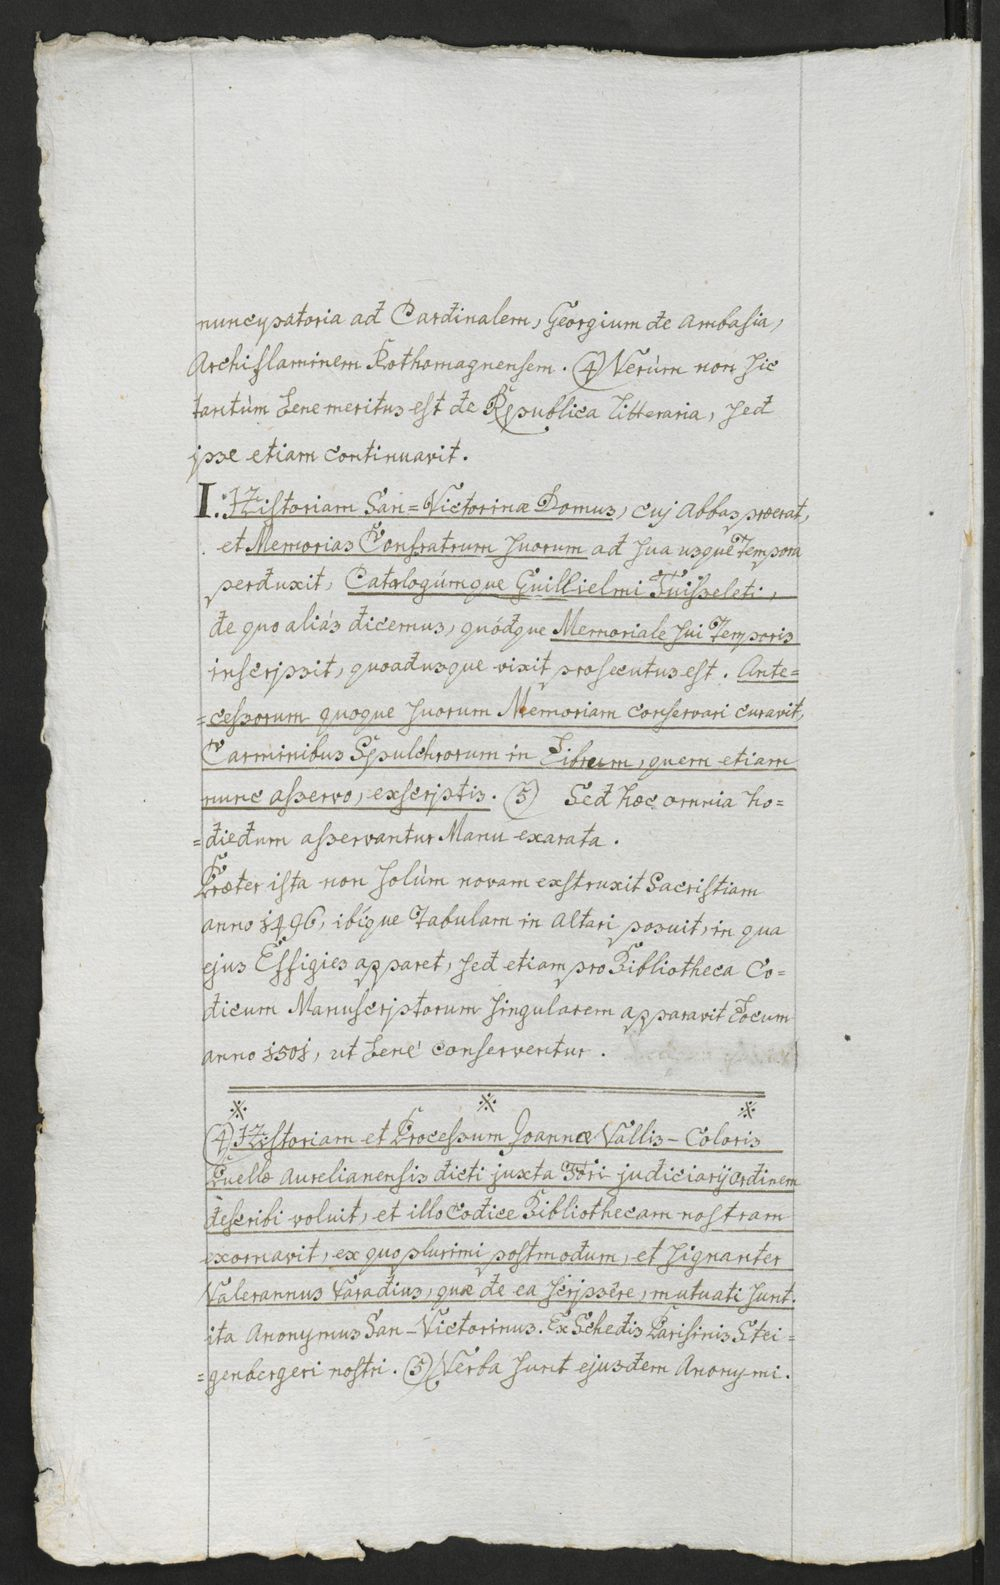 nuncupatoria ad Cardinalem, Georgium de Ambasia,
Archiflaminem Rothomagnensem. (4) Verùm non sic
tantùm bene meritus est de Republica litteraria, sed
ipse etiam continuavit.
I. Historiam San=Victorinæ Domus, cuj Abbas præerat,
et Memorias Confratrum suorum ad sua usque Tempora
perduxit, Catalogúmque Guillielmi Tuisseleti,
de quo aliás dicemus, quódque Memoriale sui Temporis
inscripsit, quoadusque vixit prosecutus est. Ante=
=cessorum quoque suorum Memoriam conservari curavit,
Carminibus Sepulchrorum in Librum, quem etiam
nunc asservo, exscriptis. (5) Sed hæc omnia ho=
=diedum asservantur Manu exarata.
Præter ista non solùm novam exstruxit Sacristiam
anno 1496, ibíque Tabulam in Altari posuit, in qua
ejus Effigies apparet, sed etiam pro Bibliotheca Co=
dicum Manuscriptorum singularem apparavit Locum
anno 1501, ut bene conserventur.
※ ※ ※
(4) Historiam et Processum Joannæ Vallis-Coloris
Puellæ Aurelianensis dicti juxta Fori judiciarij ordinem
describi voluit, et illo Codice Bibliothecam nostram
exornavit, ex quo plurimi postmodum, et signanter
Valerannus Varadius, quæ de ea scripsêre, mutuati sunt.
ita Anonymus San-Victorinus. Ex Schedis Parisinis Stei=
=genbergeri nostri. (5) Verba sunt ejusdem Anonymi.